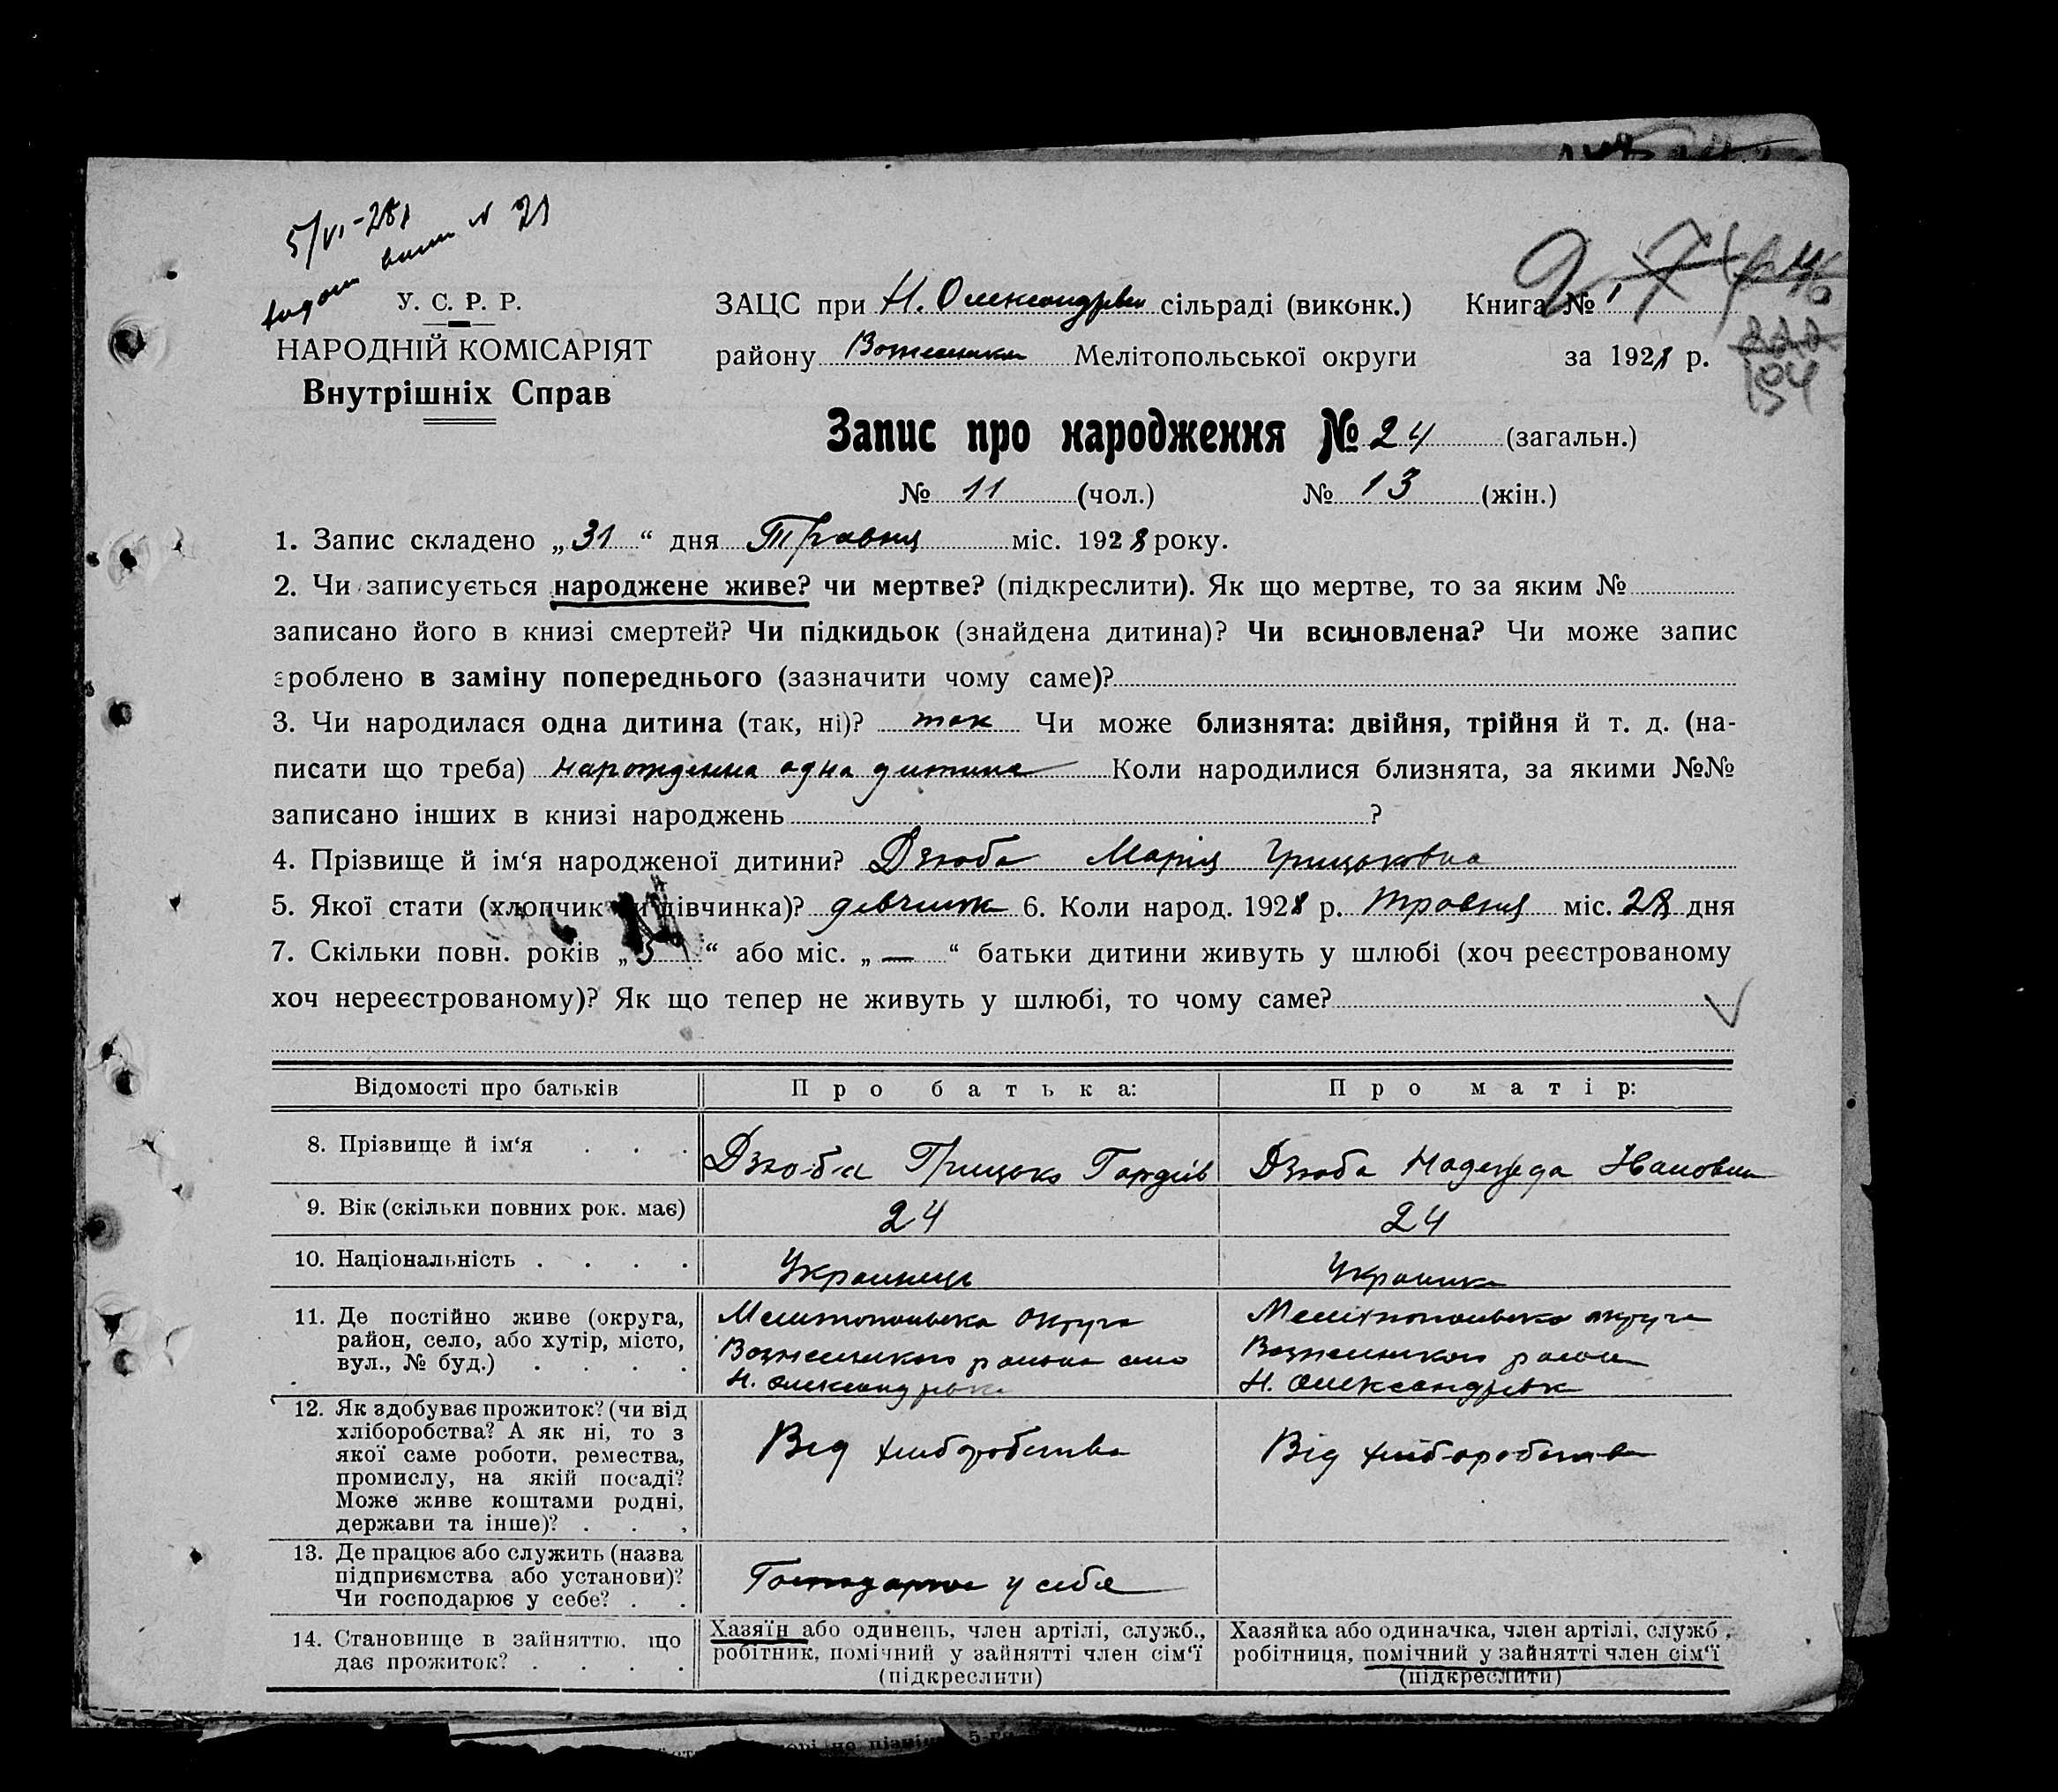 5/VI-28
№ 21
У. С. Р. Р.
НАРОДНІЙ КОМІСАРІЯТ
Внутрішніх Справ
ЗАЦС при Н. Олександрівск сільраді (виконк.) Книга № 1
району Мелітопольської округи за 1928 р.
194
Запис про народження № 24 (загальн.)
№ 11 (чол.) № 13 (жін.)
1. Запис складено „31“ дня Травня міс. 1928 року.
2. Чи записується народжене живе? чи мертве? (підкреслити). Як що мертве, то за яким №
записано його в книзі смертей? Чи підкидьок (знайдена дитина)? Чи всиновлена? Чи може запис
зроблено в заміну попереднього (зазначити чому саме)?
3. Чи народилася одна дитина (так, ні)? так Чи може близнята: двійня, трійня й т. д. (на-
писати що треба) народженна одна дитина Коли народилися близнята, за якими №№
записано інших в книзі народжень ?
4. Прізвище й ім‘я народженої дитини? Дзюба Марія Грицьковна
5. Якої стати (хлопчик чи дівчинка)? девчинк 6. Коли народ. 1928 р. травня міс. 28 дня
7. Скільки повн. років „5“ або міс. „—“ батьки дитини живуть у шлюбі (хоч реєстрованому
хоч нереєстрованому)? Як що тепер не живуть у шлюбі, то чому саме?
Відомості про батьків Про батька: Про матір:
8. Прізвище й ім‘я Дзюба Грицько Гордіїв Дзюба Надежда Ивановна
9. Вік (скільки повних рок. має) 24 24
10. Національність Украинець Украинка
11. Де постійно живе (округа,
район, село, або хутір, місто,
вул., № буд.)
Мелитопольска округа
Вознесенского района село
Н. Олександрівка
Мелітопольска округа
Вознесенского район
Н. Олександрівк
12. Як здобуває прожиток? (чи від
хліборобства? А як ні, то з
якої саме роботи, ремества,
промислу, на якій посаді?
Може живе коштами родні,
держави та інше)?
Від хліборобства
Від хліборобства
13. Де працює або служить (назва
підприємства або установи)?
Чи господарює у себе?
Господарює у себе
14. Становище в зайняттю, що
дає прожиток?
Хазяїн або одинець, член артілі, служб.,
робітник, помічний у зайнятті член сім‘ї
(підкреслити)
Хазяйка або одиначка, член артілі, служб.,
робітниця, помічний у зайнятті член сім‘ї
(підкреслити)